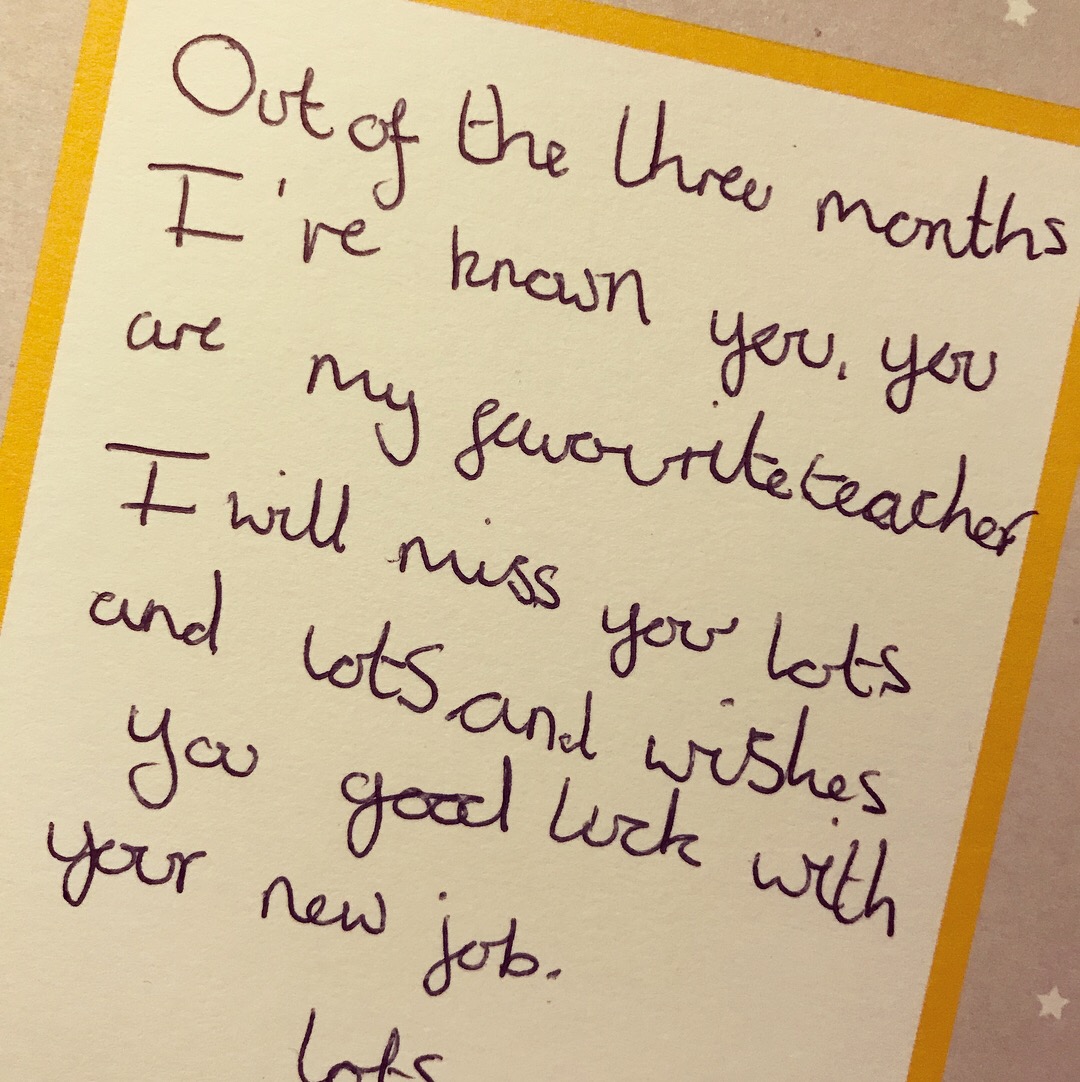 Out of the three months
I've known you, you
are my favourite teacher
I will miss you lots
and lots and wishes
you good luck with
your new job.
lots